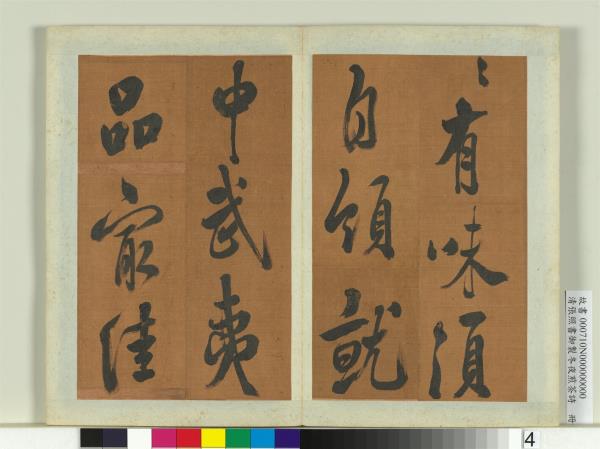 〻有味須
自領就
中武夷
品最佳
故書 000710N000000000
清張照書御製冬夜煎茶詩 冊
4